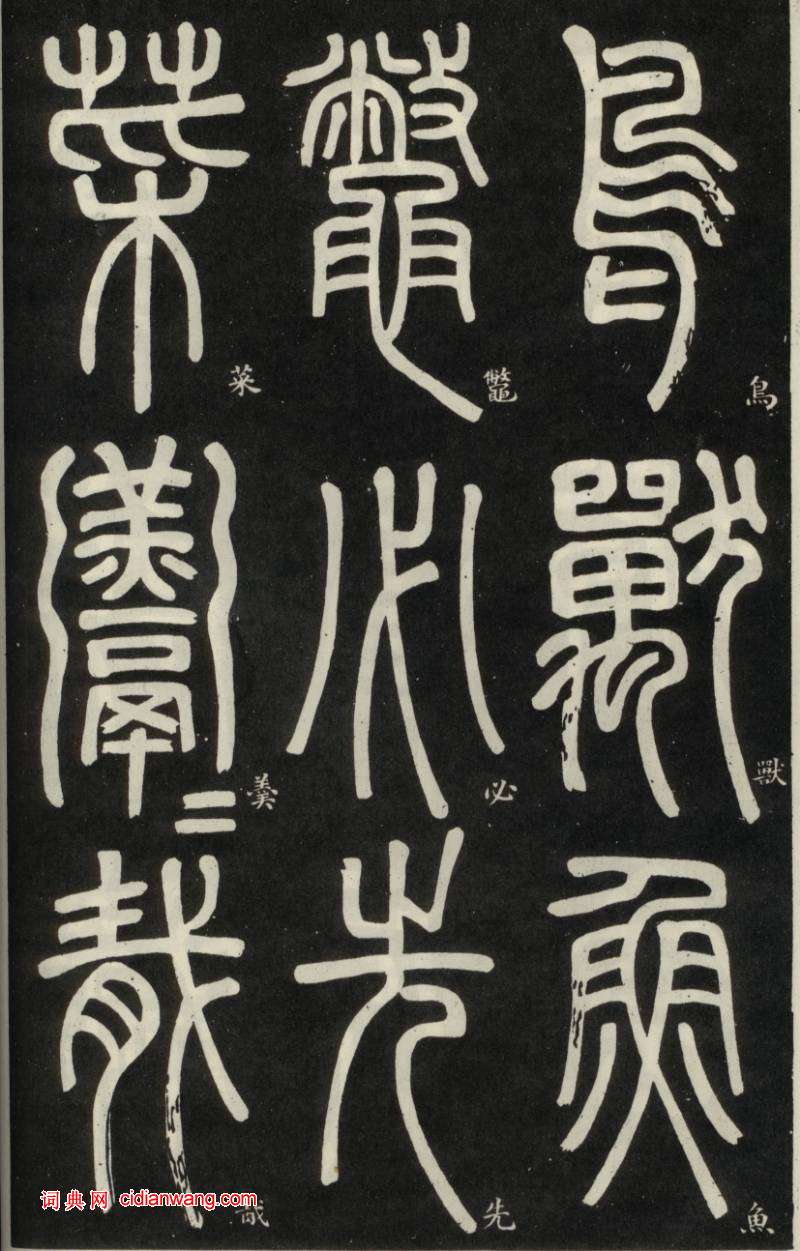 鳥獸魚
鳥
獸
魚
鼈必先
鼈
必
先
菜羹二胾
菜
羹
胾
词典网 cidianwang.com